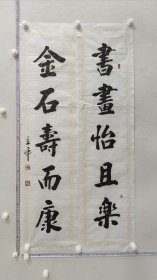 書畫怡且樂
金石壽而康